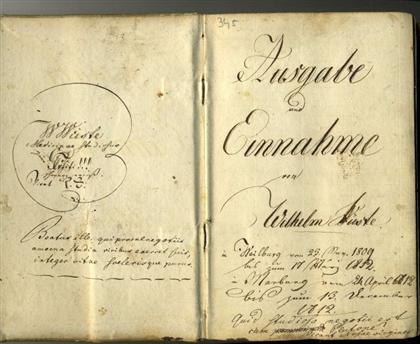 W Wüste
Medicinae Studiosus
Beatus ille qui procul negotiis
amoena studia viribus exercet suis,
integer vitae scelerisque purus
345
Ausgabe
und
Einnahme
von
Wilhelm Wüste
a Weilburg von 25. 1809
bis zum 17 März 1812.
a Marburg vom 24 April 1812
bis zum 13. December
1812.
Quid studioso negotii est
cum Plutone?